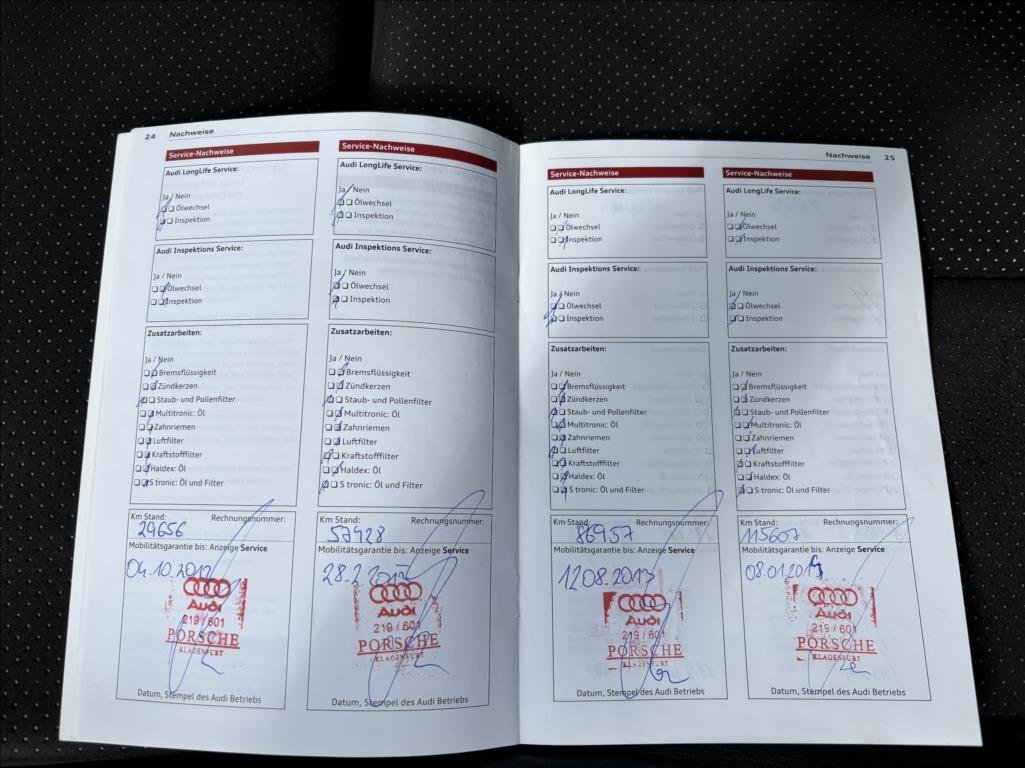 24 Nachweise
Service-Nachweis
Audi LongLife Service:
Ja / Nein
Ölwechsel
Inspektion
Audi Inspektions Service:
Ja / Nein
Ölwechsel
Inspektion
Zusatzarbeiten:
Ja / Nein
Bremsflüssigkeit
Zündkerzen
Staub- und Pollenfilter
Multitronic: Öl
Zahnriemen
Luftfilter
Kraftstofffilter
Haldex: Öl
S tronic: Öl und Filter
Km Stand: Rechnungsnummer:
29656
Mobilitätsgarantie bis: Anzeige Service
04.10.2012
Audi
219 / 601
PORSCHE
KLAGENFURT
Datum, Stempel des Audi Betriebs
Service-Nachweis
Audi LongLife Service:
Ja / Nein
Ölwechsel
Inspektion
Audi Inspektions Service:
Ja / Nein
Ölwechsel
Inspektion
Zusatzarbeiten:
Ja / Nein
Bremsflüssigkeit
Zündkerzen
Staub- und Pollenfilter
Multitronic: Öl
Zahnriemen
Luftfilter
Kraftstofffilter
Haldex: Öl
S tronic: Öl und Filter
Km Stand: Rechnungsnummer:
57428
Mobilitätsgarantie bis: Anzeige Service
Audi
219 / 601
PORSCHE
KLAGENFURT
Datum, Stempel des Audi Betriebs
Nachweise 25
Service-Nachweis
Audi LongLife Service:
Ja / Nein
Ölwechsel
Inspektion
Audi Inspektions Service:
Ja / Nein
Ölwechsel
Inspektion
Zusatzarbeiten:
Ja / Nein
Bremsflüssigkeit
Zündkerzen
Staub- und Pollenfilter
Multitronic: Öl
Zahnriemen
Luftfilter
Kraftstofffilter
Haldex: Öl
S tronic: Öl und Filter
Km Stand: Rechnungsnummer:
86957
Mobilitätsgarantie bis: Anzeige Service
12.08.2013
Audi
219 / 601
PORSCHE
KLAGENFURT
Datum, Stempel des Audi Betriebs
Service-Nachweis
Audi LongLife Service:
Ja / Nein
Ölwechsel
Inspektion
Audi Inspektions Service:
Ja / Nein
Ölwechsel
Inspektion
Zusatzarbeiten:
Ja / Nein
Bremsflüssigkeit
Zündkerzen
Staub- und Pollenfilter
Multitronic: Öl
Zahnriemen
Luftfilter
Kraftstofffilter
Haldex: Öl
S tronic: Öl und Filter
Km Stand: Rechnungsnummer:
115607
Mobilitätsgarantie bis: Anzeige Service
Audi
219 / 601
PORSCHE
KLAGENFURT
Datum, Stempel des Audi Betriebs